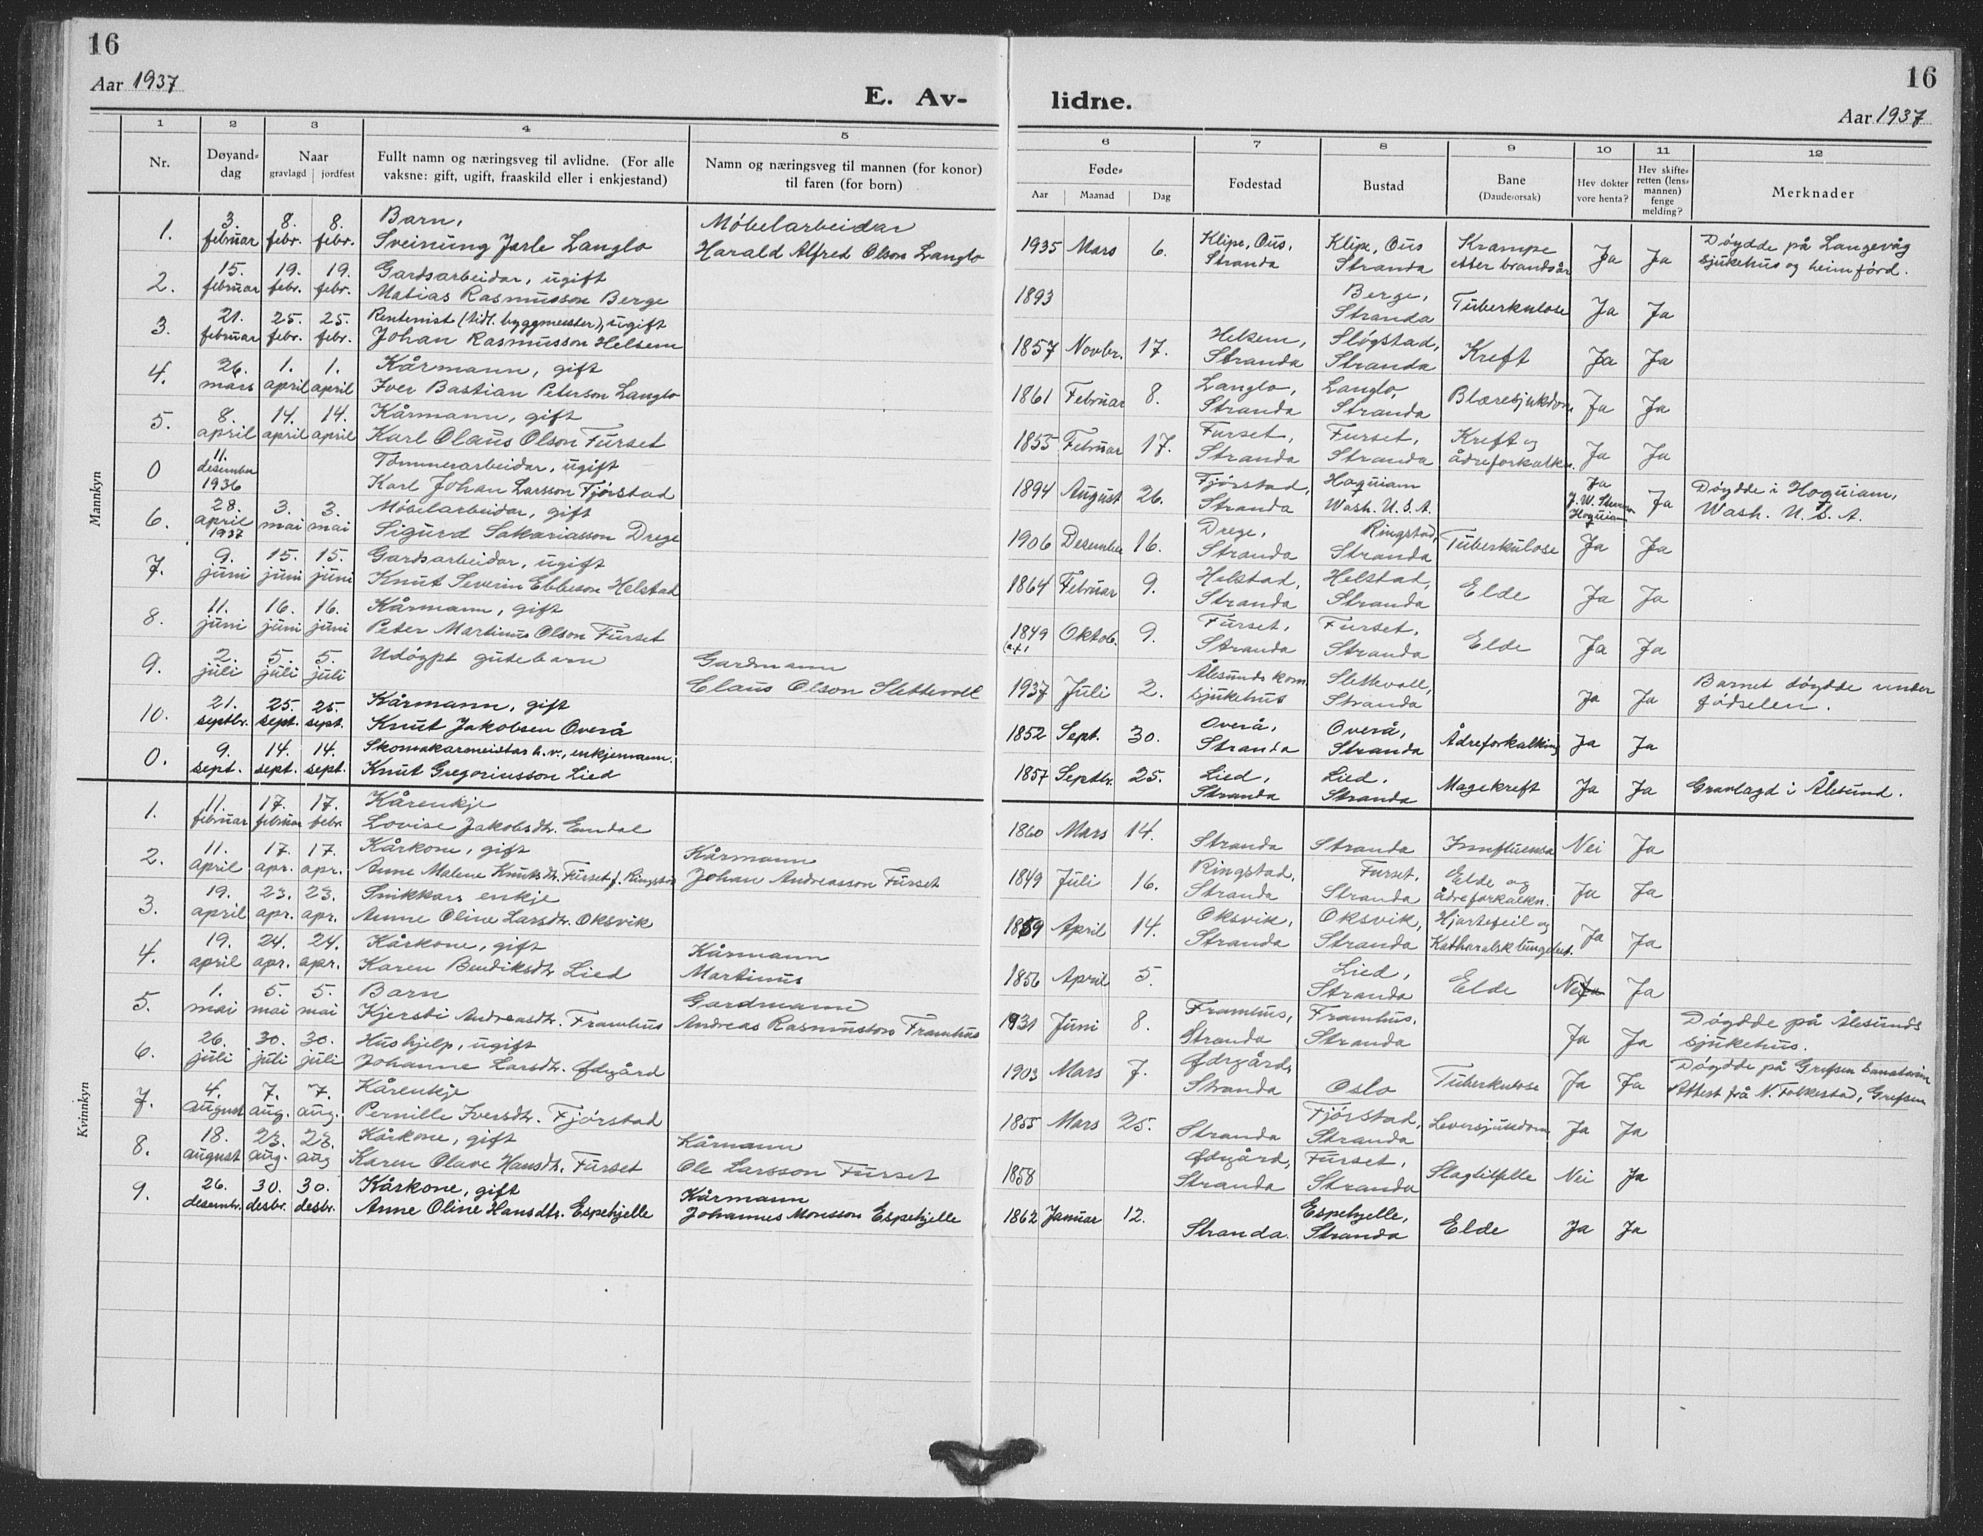 16
Aar 1937
E. Av-
lidne.
16
Aar 1937
1 2 3 4 5 6 7 8 9 10 11 12
Nr.
Døyand-
dag
Naar
gravlagd | jordfest
Fullt namn og næringsveg til avlidne. (For alle
vaksne: gift, ugift, fraaskild eller i enkjestand)
Namn og næringsveg til mannen (for konor)
til faren (for born)
Føde-
Aar Maanad Dag
Fødestad
Bustad
Bane
(Daudeorsak)
Hev dokter
vore henta?
Hev skifte-
retten (lens-
mannen)
fenge
melding?
Merknader
Mannkyn
1. 3. februar 8. febr. 8. febr. Barn, Møbelarbeidar
Sveinung Jarle Langlo Harald Alfred Olson Langlo
1935 Mars 6. Klipe, Ous, Stranda Klipe, Ous Stranda Krampe etter brandsår Ja Ja Døydde på Langevåg
sjukehus og heimførd.
2. 15. februar 19. febr. 19. febr. Gardsarbeidar, ugift
Matias Rasmusson Berge
1893 Berge, Stranda Tuberkulose Ja Ja
3. 21. februar 25. febr. 25. febr. Rentenist (tidl. byggmeister), ugift
Johan Rasmusson Helsem
1857 Novbr. 17. Helsem, Stranda Sløgstad, Stranda Kreft Ja Ja
4. 26. mars 1. april 1. april Kårmann, gift
Iver Bastian Peterson Langlo
1861 Februar 8. Langlo, Stranda Langlo, Stranda Blæresjukdom Ja Ja
5. 8. april 14. april 14. april Kårmann, gift
Karl Olaus Olson Furset
1855 Februar 17. Furset, Stranda Furset, Stranda Kreft og ådreforkalkn. Ja Ja
0 11. desember 1936 Tømmerarbeidar, ugift
Karl Johan Larsson Fjørstad
1894 August 26. Fjørstad, Stranda Hoquiam Wash. U.S.A. Ja J. W. Hoquiam Ja Døydde i Hoquiam,
Wash. U.S.A.
6. 28. april 1937 3. mai 3. mai Møbelarbeidar, gift
Sigurd Sakariasson Drege
1906 Desember 16. Drege, Stranda Ringstad, Stranda Tuberkulose Ja Ja
7. 9. juni 15. juni 15. juni Gardsarbeidar, ugift
Knut Severin Ebbeson Helstad
1864 Februar 9. Helstad, Stranda Helstad, Stranda Elde Ja Ja
8. 11. juni 16. juni 16. juni Kårmann, gift
Peter Martinus Olson Furset
1849 Oktob. 9. Furset, Stranda Furset, Stranda Elde Ja Ja
9. 2. juli 5. juli 5. juli Udøypt gutebarn Gardmann
Claus Olson Slettevoll
1937 Juli 2. Ålesunds kom. sjukehus Slettevoll, Stranda Ja Ja Barnet døydde under
fødselen.
10. 21. septbr. 25. sept. 25. sept. Kårmann, gift
Knut Jakobsen Overå
1852 Sept. 30. Overå, Stranda Overå, Stranda Ådreforkalking Ja Ja
0. 9. sept. 14. sept. 14. sept. Skomakarmeistar h.v., enkjemann.
Knut Gregoriusson Lied
1857 Septbr. 25. Lied, Stranda Lied, Stranda Magekreft Ja Ja Gravlagd i Ålesund.
Kvinnkyn
1. 11. februar 17. februar 17. febr. Kårenkje
Lovise Jakobsdtr. Emdal
1860 Mars 14. Stranda Stranda Innfluensa Nei Ja
2. 11. april 17. apr. 17. apr. Kårkone, gift Kårmann
Anne Malene Knutsdtr. Furset f. Ringstad Johan Andreasson Furset
1849 Juli 16. Ringstad, Stranda Furset, Stranda Elde og ådreforkalkn. Ja Ja
3. 19. april 23. apr. 23. apr. Snikkars enkje
Anne Oline Larsdtr. Oksvik
1859 April 14. Oksvik, Stranda Oksvik, Stranda Hjartefeil og Katharalsk lungebet. Ja Ja
4. 19. april 24. apr. 24. apr. Kårkone, gift Kårmann
Karen Bendiksdtr Lied Martinus
1856 April 5. Lied, Stranda Elde Nei Ja Ja
5. 1. mai 5. mai 5. mai Barn Gardmann
Kjersti Andreasdtr. Framhus Andreas Rasmusson Framhus
1931 Juni 8. Framhus, Stranda Framhus, Stranda Ja Ja Døydde på Ålesunds
sjukehus.
6. 26. juli 30. juli 30. juli Hushjelp, ugift
Johanne Larsdtr. Ødegård
1903 Mars 7. Ødegård, Stranda Oslo Tuberkulose Ja Ja Døydde på Grefsen Sanatorium
Attest frå N. Folkestad, Grefsen
7. 4. august 7. aug. 7. aug. Kårenkje
Pernille Iversdtr. Fjørstad
1855 Mars 25. Stranda Fjørstad, Stranda Leversjukdom Ja Ja
8. 18. august 23. aug. 23. aug Kårkone, gift Kårmann
Karen Olave Hansdtr. Furset Ole Larsson Furset
1858 Ødegård, Stranda Furset, Stranda Slagtilfelle Nei Ja
9. 26. desembr. 30. desbr. 30. desbr. Kårkone, gift Kårmann
Anne Oline Hansdtr. Espehjelle Johannes Monsson Espehjelle
1862 Januar 12. Stranda Espehjelle, Stranda Elde Ja Ja